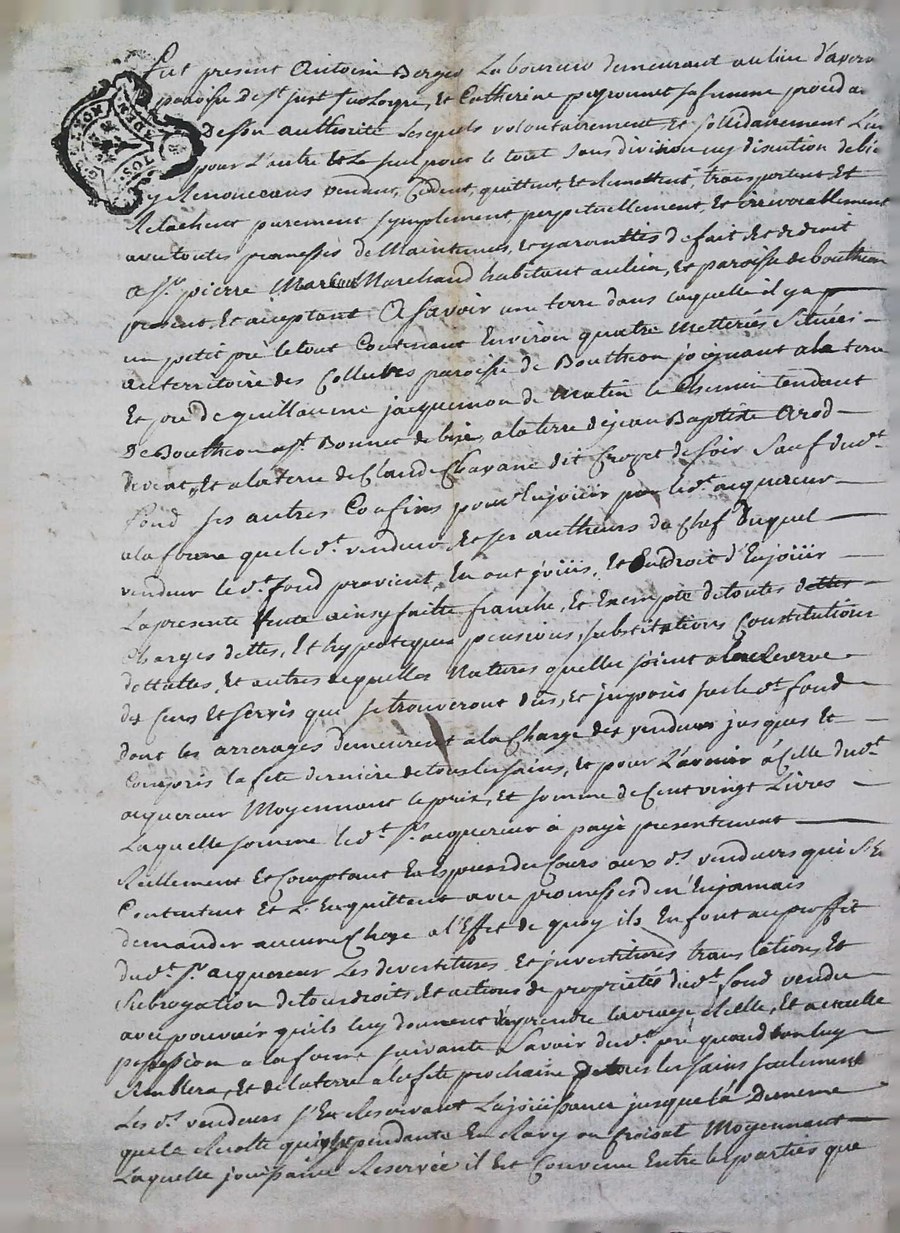 Fut present Antoine Berger Laboureur demeurant au lieu d'
paroisse De st just sur Loyre, et Catherine peyronnet sa femme proced
De son authorité Lesquels volontairement Et sollidairement L'un
pour L'autre et Le seul pour le tout sans division ny discution de bie
y Renonceans vendent, Cedent, quittent, et Remettent, transportent et
Relachent purement, symplement, perpetuellement, et irrevocablement
avec toutes promesses de Maintenue, et garanties de fait, et de droit
a sr. pierre Marchand habitant au lieu, et paroisse de bouthean
present, et acceptant. A savoir une terre dans laquelle il y a
un petit pré le tout Contenant Environ quatre Metterées située
au territoire des Collubes paroisse de Boutheon joignant a la terre
Et pré de guillaume jacquemon de matin le Chemin tendant
De Boutheon a st. Bonnet de bize, a la terre de jean Baptiste Arod
de vent, Et a la terre de Claude Chavane dit Crozet de soir Sauf dudt.
fond ses autres Confins pour Enjoüir par ledt. acquereur
a la forme que le dt. vendeur, et ses autheurs du Chef duquel
vendeur le dt. fond provient, En ont joüis, Et En droit d'Enjoüir
La presente Vente ainsy faitte franche, Et Exempte de toutes dettes
charges dettes, Et hypoteques pensions, substitutions Constitutions
dottalles, Et autres de quelles Natures quelles soient a la Reserve
des Cens Et servis que se trouveront dûs, et jmposés sur le dt. fond
dont les arrerages demeurent a la Charge des vendeurs jusques Et
Compris la fete derniere de tous les sains, Et pour L'avenir à Celle dudt.
acquereur Moyennant le prix, Et somme de Cent vingt Livres
Laquelle somme le dt. sr. acquereur à payé presentement
Reellement Et Comptant En Especes du Cours aux dt. vendeurs qui s'En
Contentent Et L'En quittent avec promesses de n'En jamais
demander aucune Chose a l'Effet de quoy ils En font au proffit
dudt. sr. acquereur Les devestitures Et jnvestitures translations, Et
Subrogation de tous droits, Et actions de proprietés dudt. fond vendu
avec pouvoir quils luy donnent d'En prendre la vraye Reelle, Et actuelle
possession a la forme suivante Savoir dudt. pré quand bon luy
Semblera, Et de la terre a la fete prochaine de tous les sains seulement
Les dt. vendeurs s'En Reservant La joüissance jusque la De meme
que la Recolte quisy pendante En Moyennant
Laquelle joüissance Reservée il Est Convenu Entre les parties que